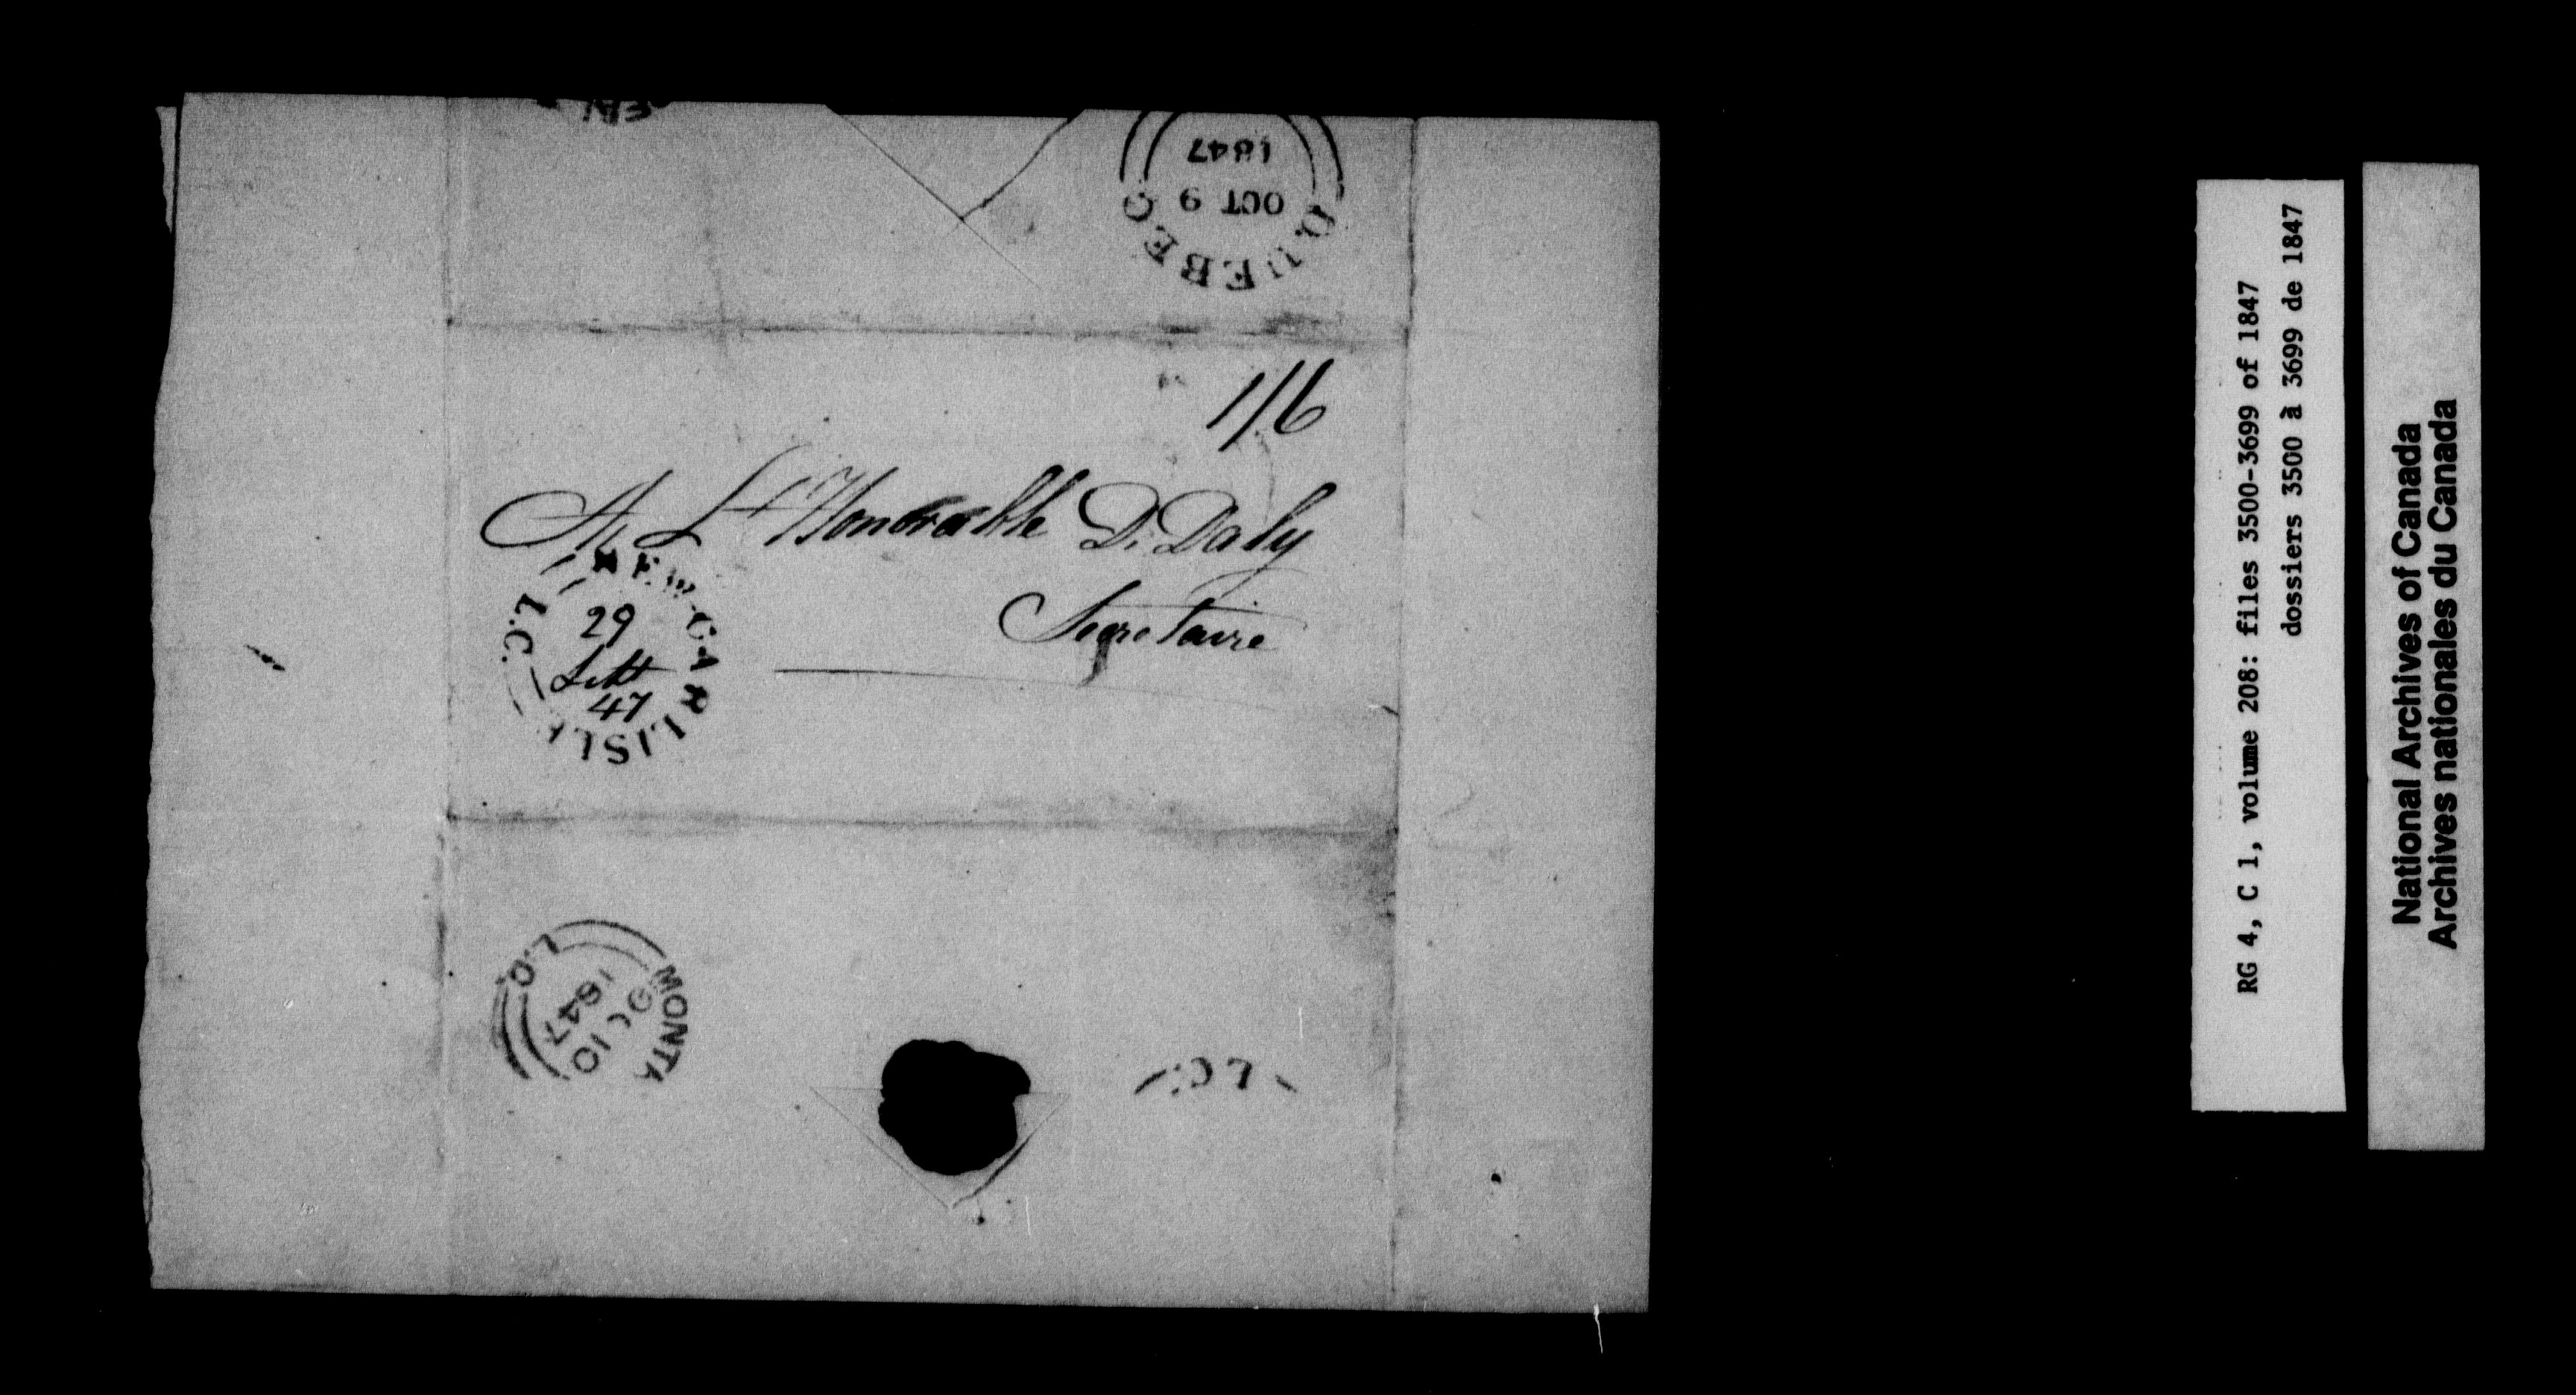 QUEBEC
OCT 9
1847
1/6
A L'Honorable D. Daly
Secretaire
NEW-CARLISLE
L.C.
29
Sett
47
MONT
L.C.
OC 10
1847
L.C.
RG 4, C 1, volume 208: files 3500-3699 of 1847
dossiers 3500 à 3699 de 1847
National Archives of Canada
Archives nationales du Canada